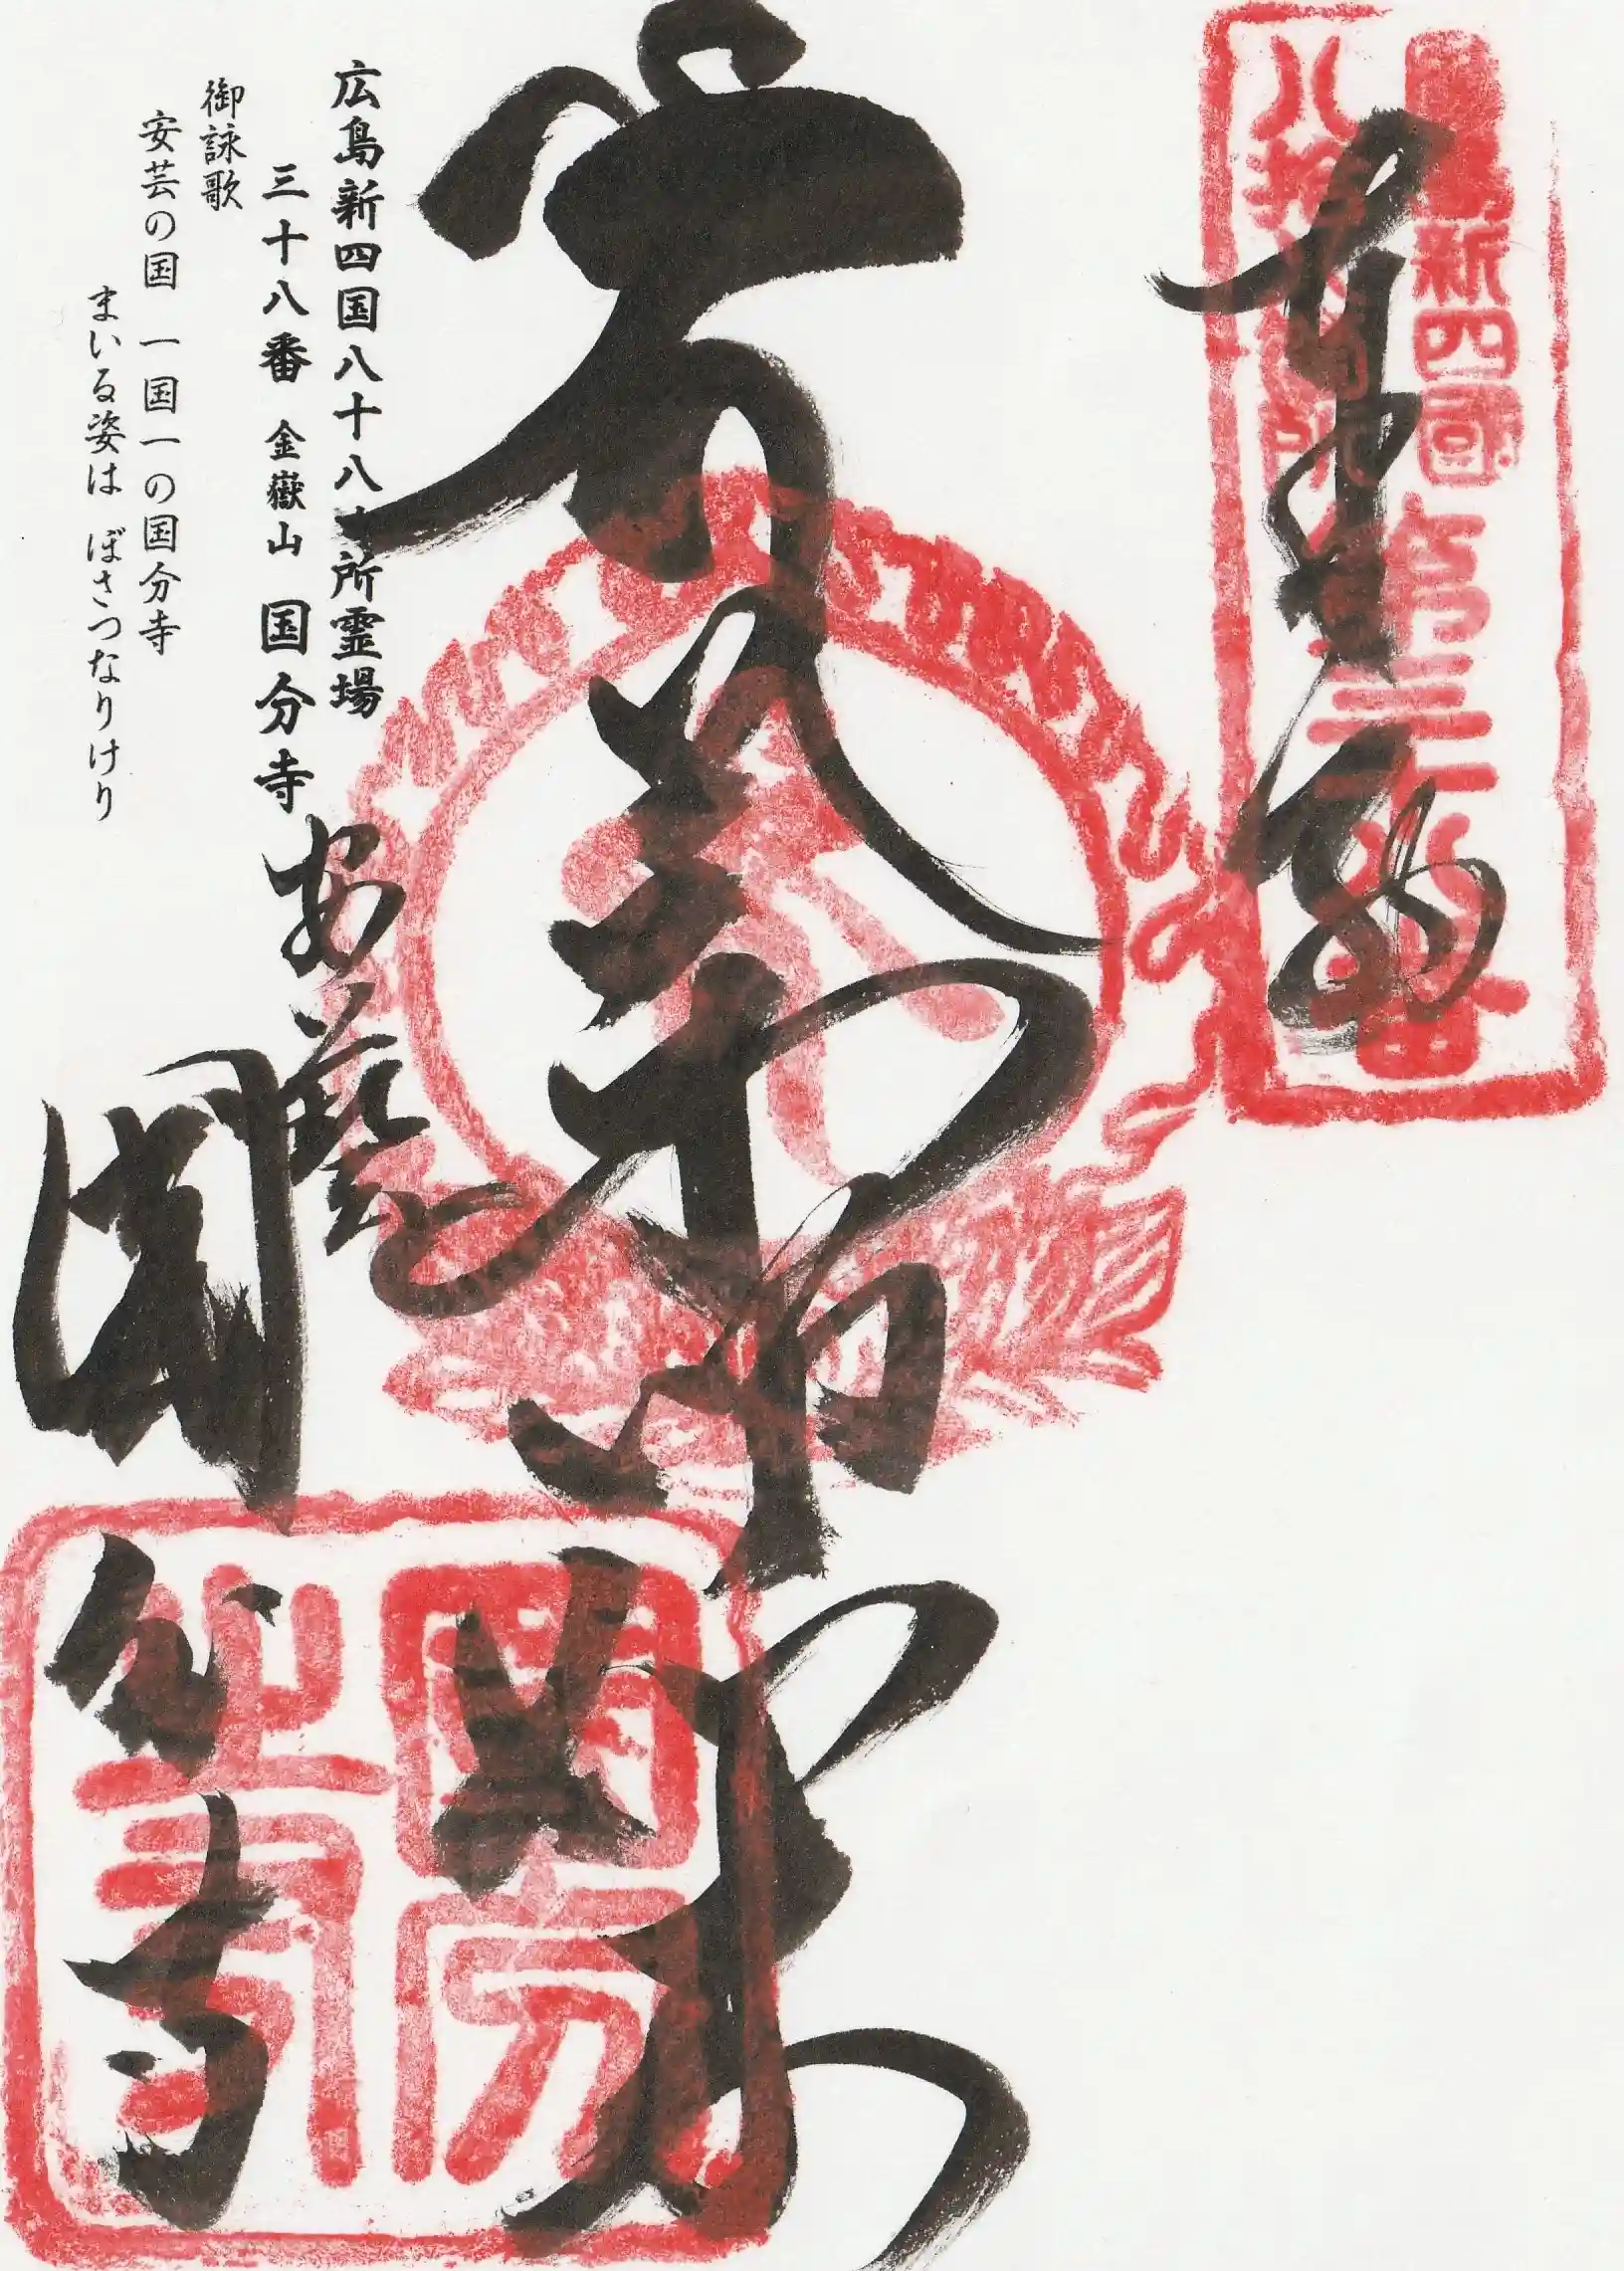 奉拝
新四國
八拾八ヶ所
第三十八番
薬師如来
広島新四国八十八ヶ所霊場
三十八番 金嶽山 国分寺
御詠歌
安芸の国 一国一の国分寺
まいる姿は ぼさつなりけり
安藝
國分寺
國分寺